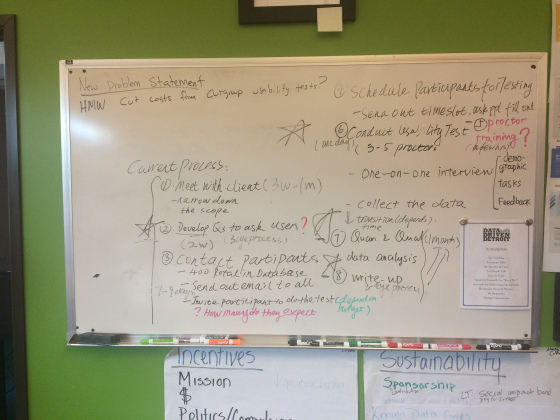 New Problem Statement
HMW cut costs from our group usability tests?
Current process:
① Meet with client (3w-1m)
- narrow down
the scope
② Develop Qs to ask user?
(2w)
③ Contact participants
- 400 total in Database
- Send out email to all
- Invite participant to do the test (depend on
budget)
? How many do they expect
④ Schedule Participants for Testing
- Send out timeslot, ask ppl fill out
⑤ proctor
training?
⑥ Conduct Usability Test
(one day)
(3-5 proctors)
- One-on-one interview
demo-
graphic
tasks
Feedback
- Collect the data
transition (depends)
time
⑦ Quan & Qual (1 month)
data analysis
⑧ write-up
DATA
DRIVEN
DETROIT
Incentives
Mission
$
Sustainability
Sponsorship
LT: Social impact bond
Known Data Gaps